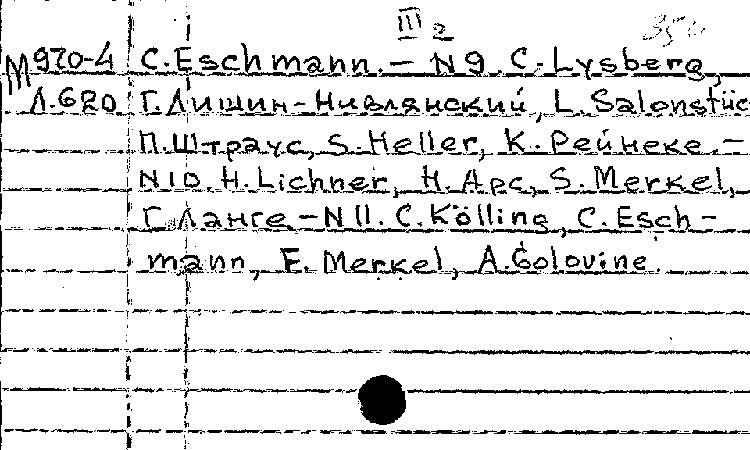 III 2
М 970-4 C. Eschmann. – N 9. C. Lysberg,
Л.620 Г. Лишин-Нивлянский, L. Salonstüc
П. Штраус, S. Heller, К. Рейнеке. –
N 10. H. Lichner, Н. Арс, S. Merkel,
Г. Ланге. – N 11. C. Kölling, C. Esch-
mann, E. Merkel, A. Golovine.